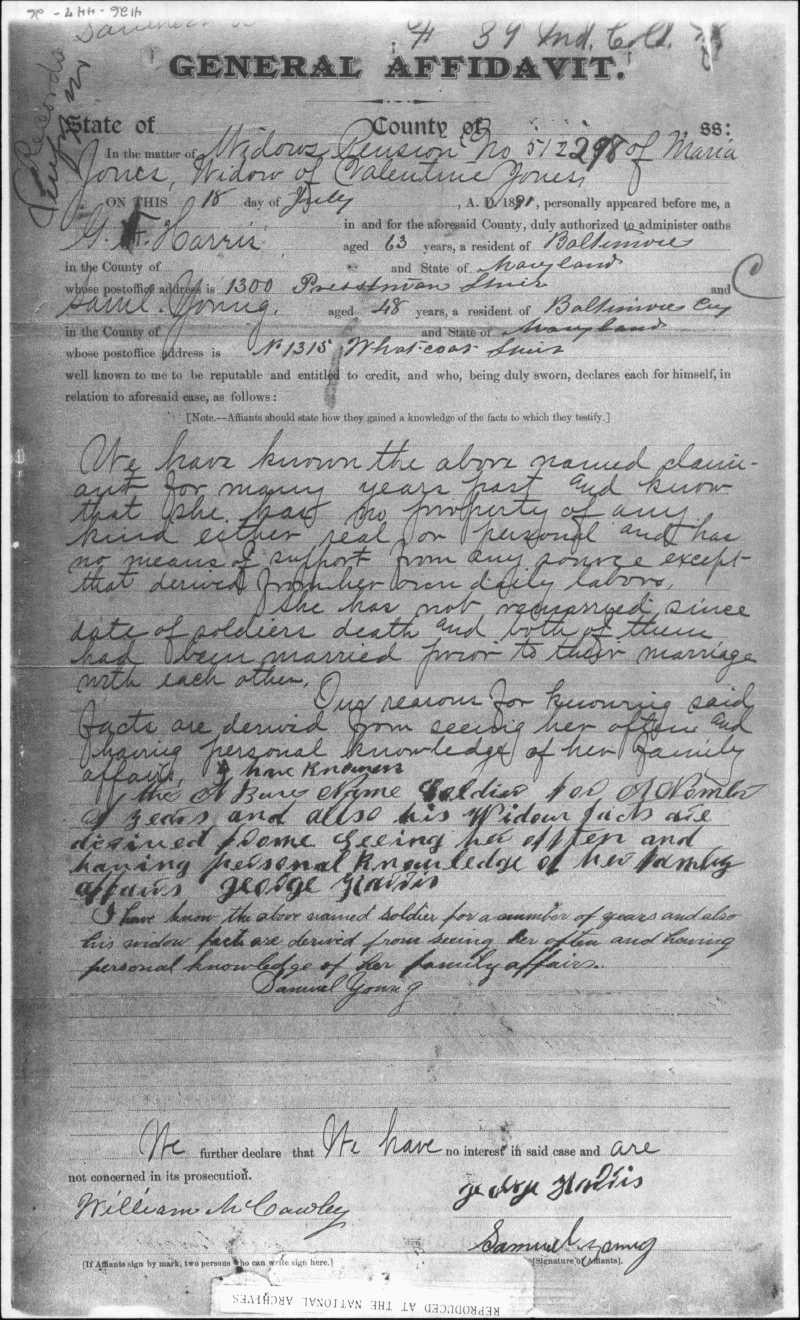 4 39 Ind. Cold.
Records
GENERAL AFFIDAVIT.
State of County of ss:
In the matter of Widows Pension No 512298 of Maria
Jones, Widow of Valentine Jones,
ON THIS 18 day of July, A. D. 1891, personally appeared before me, a
in and for the aforesaid County, duly authorized to administer oaths
G. F. Harris aged 63 years, a resident of Baltimore
in the County of and State of Maryland
whose postoffice address is 1300 Presstman and
Saml. Young. aged 48 years, a resident of Baltimore City
in the County of and State of Maryland
whose postoffice address is No 1315 Whatcoat
well known to me to be reputable and entitled to credit, and who, being duly sworn, declares each for himself, in
relation to aforesaid case, as follows:
[Note.—Affiants should state how they gained a knowledge of the facts to which they testify.]
We have known the above named claim-
ant for many years past and know
that she has no property of any
kind either real or personal and has
no means of support from any source except
that derived from her own daily labors.
She has not remarried since
date of soldiers death and both of them
had been married prior to their marriage
with each other.
Our reasons for knowing said
facts are derived from seeing her often and
having personal knowledge of her family
affairs, I have Known
the A Bove Name Soldier for A Number
of years and allso his Widow facts are
dirived frome Seeing her often and
having personal Knowledge of her family
affairs George Harris
I have know the above named soldier for a number of years and also
his widow fact are derived from seeing her often and having
personal knowledge of her family affairs.
Samuel Young
We further declare that We have no interest in said case and are
not concerned in its prosecution.
George Harris
William McCawley
Samuel Young
[If Affiants sign by mark, two persons who can write sign here.] [Signature of Affiants].
REPRODUCED AT THE NATIONAL ARCHIVES